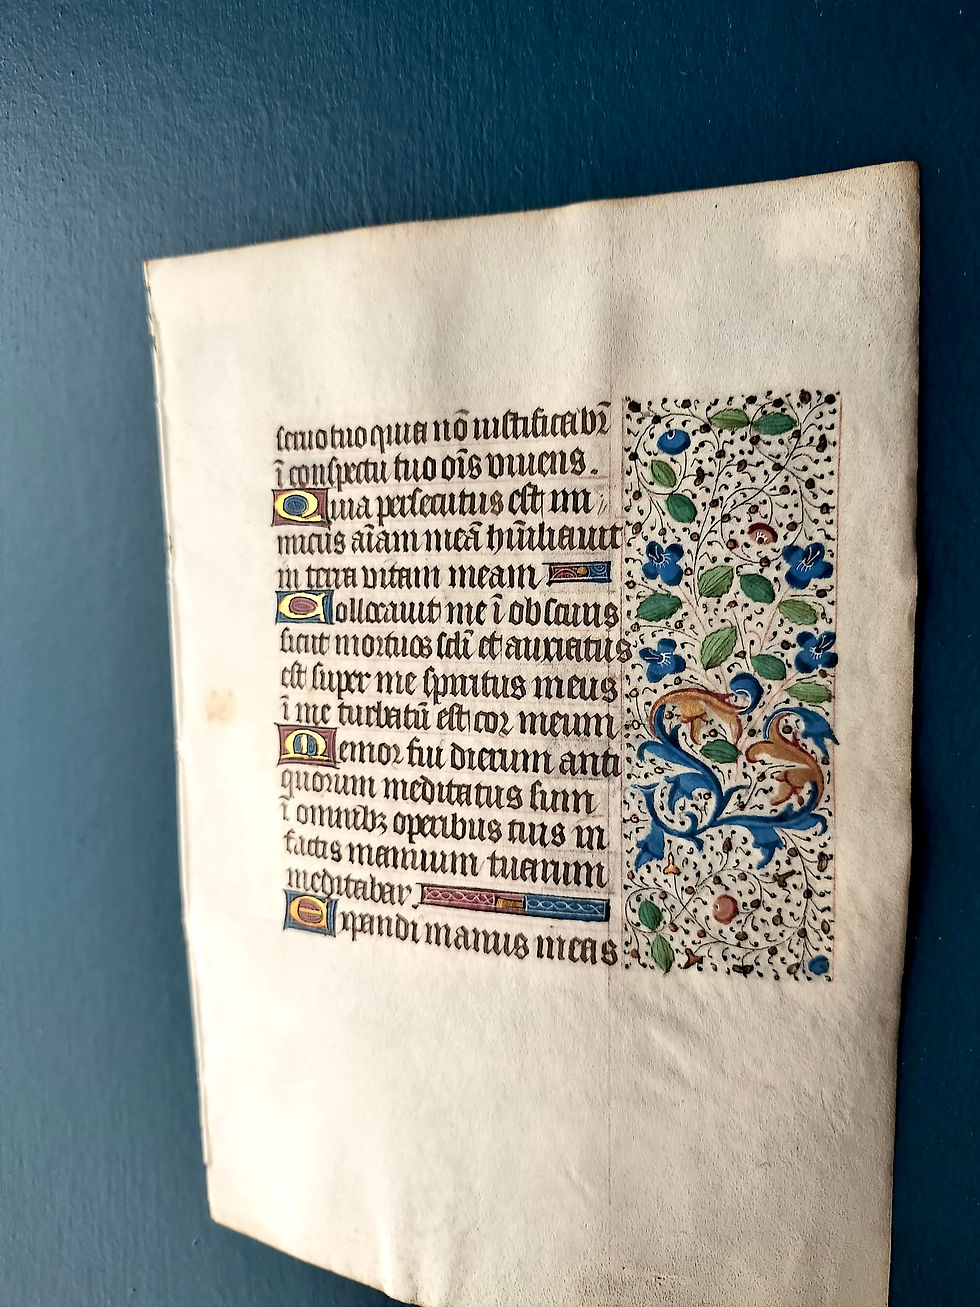 seruo tuo quia nō iustificabr̄
ī conspectu tuo oīs viuens .
Quia persecutus est ini //
micus aīam meā hūiliauit
in terra vitam meam
Collocauit me ī obscuris
sicut mortuos scłi et anxiatus
est super me spiritus meus
ī me turbatū est cor meum
Memor fui dierum anti
quorum meditatus sum
ī omnibꝫ operibus tuis in
factis manuum tuarum
meditabar
Expandi manus meas